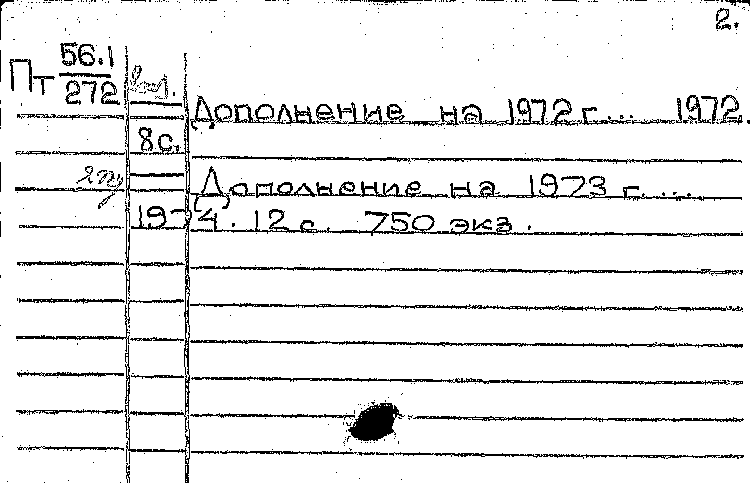 2.
Пт 56.1
272
Дополнение на 1972 г... 1972.
8 с.
Дополнение на 1973 г. ...
1974. 12 с. 750 экз.